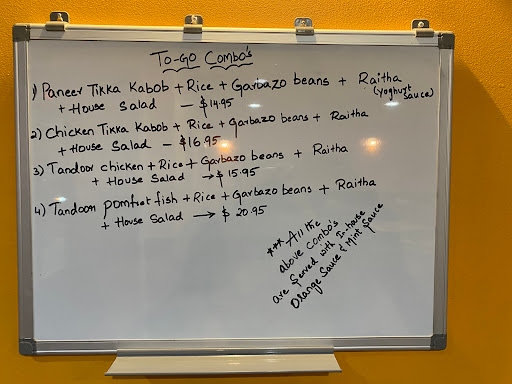 To-Go Combo's
1) Paneer Tikka Kabob + Rice + Garbazo beans + Raitha
(yoghurt sauce)
+ House Salad — $14.95
2) Chicken Tikka Kabob + Rice + Garbazo beans + Raitha
+ House Salad — $16.95
3) Tandoor chicken + Rice + Garbazo beans + Raitha
+ House Salad → $15.95
4) Tandoori pomfret fish + Rice + Garbazo beans + Raitha
+ House Salad → $20.95
*** All the
above combo's
are served with In-house
Orange Sauce & Mint Sauce